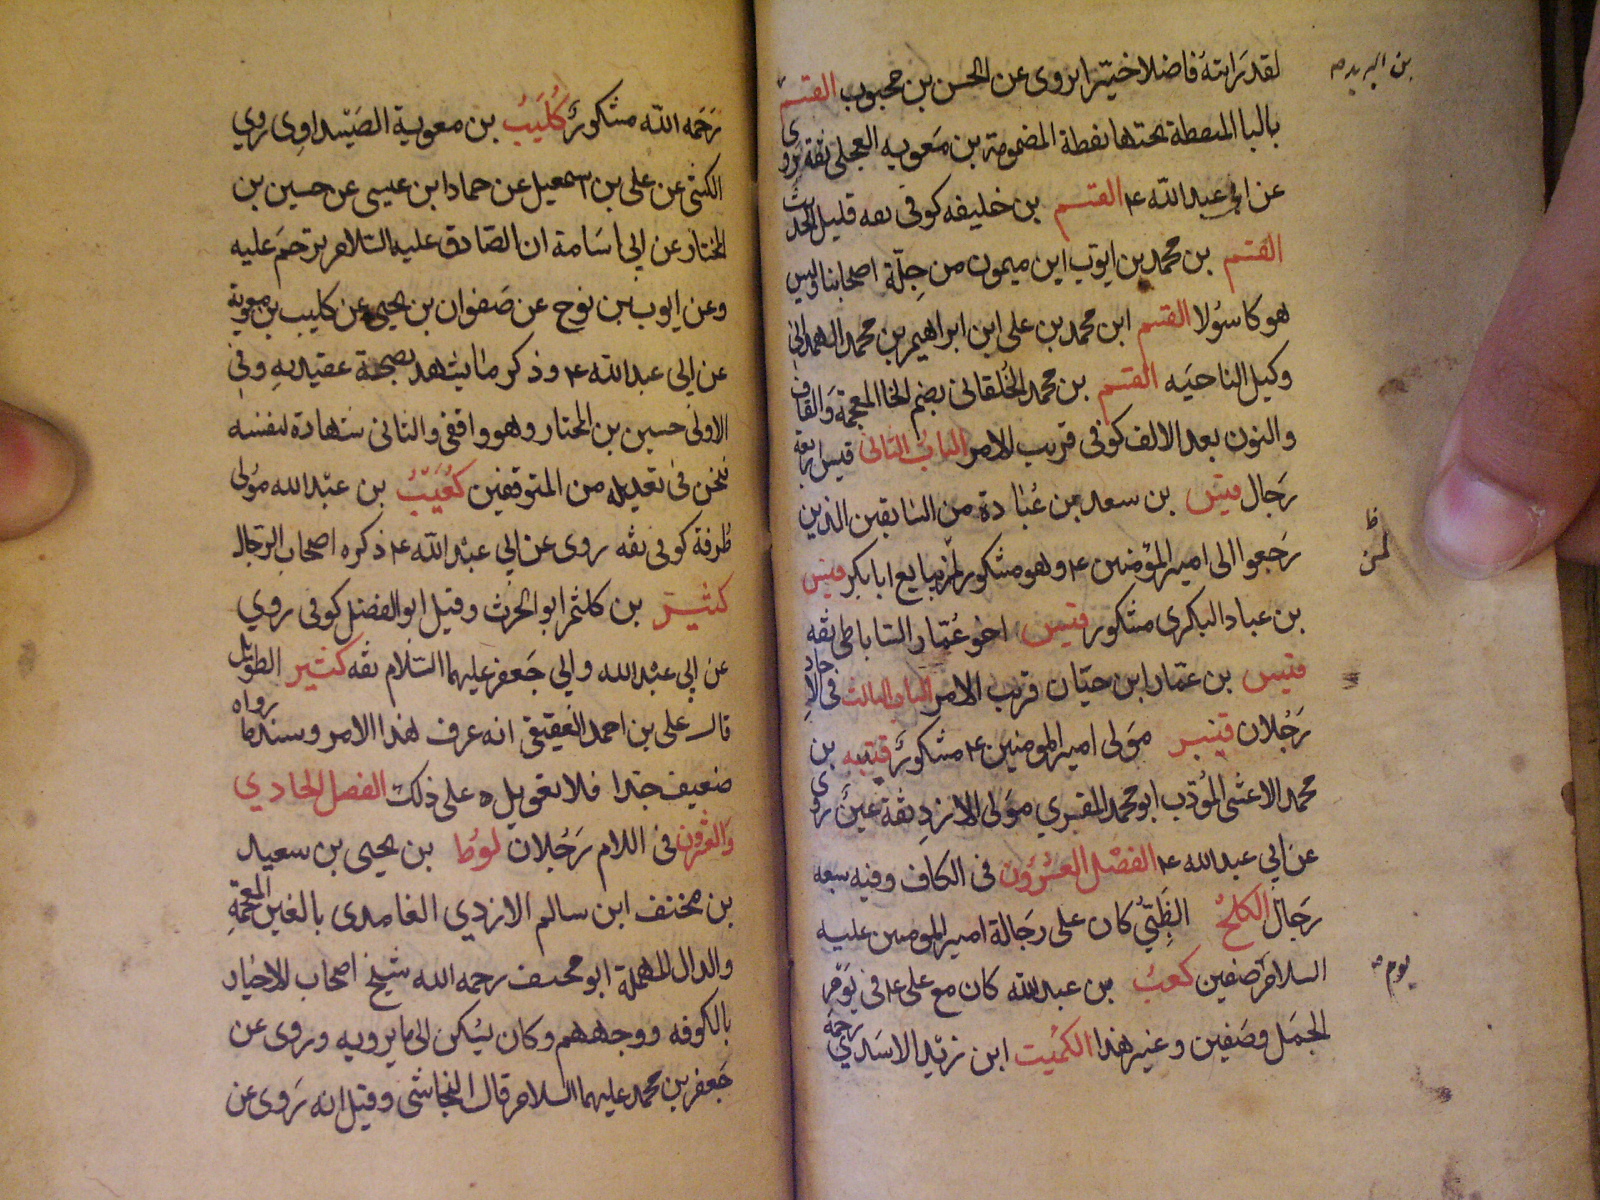 لقد رايته فاضلا خيّرا يروى عن الحسن بن محبوب القسم
بن البريد صح
بالبا المنقطة تحتها نقطة المضمومة بن معويه العجلى ثقة يروى
عن ابي عبدالله ع القسم بن خليفه كوفى ثقه قليل الحديث
القسم بن محمد بن ايوب ابن ميمون من جلّة اصحابنا وليس
هو كاسولا القسم ابن محمد بن على ابن ابراهيم بن محمد الهمدانى
وكيل الناحيه القسم بن محمد الخلقانى بضم الخا المعجمة والقاف
والنون بعد الالف كوفى قريب الامر الباب الثانى قيس اربعة
رجال قيس بن سعد بن عبادة من السابقين الذين
رجعوا الى امير المؤمنين ع وهو مشكور لم يبايع ابا بكر قيس
بن عباد البكرى مشكور قيس اخو عمّار الساباطى ثقه
قيس بن عمّار ابن حيّان قريب الامر الباب الثالث فى الاحاد
رجلان قنبر مولى امير المومنين ع مشكور قتيبه بن
محمد الاعشى المؤدّب ابو محمد المقري مولى الازد ثقة عين روى
عن ابي عبدالله ع الفصل العشرون فى الكاف وفيه سبعه
رجال الكلح الظبّيّ كان على رجالة امير المومنين عليه
السلام صفين كعب بن عبدالله كان مع على ع فى يوم
يوم صح
الجمل وصفين وغير هذا الكميت ابن زيد الاسدي رحمة
رحمه الله مشكور كليب بن معوية الصيداوى روي
الكشي عن على بن اسمعيل عن حماد ابن عيسى عن حسين بن
المختار عن ابي اسامة ان الصادق عليه السلام ترحم عليه
وعن ايوب بن نوح عن صفوان بن يحيى عن كليب بن معوية
عن ابي عبدالله ع وذكر ما يشهد بصحة عقيدته وفى
الاولى حسين بن المختار وهو واقفى والثانى شهادة لنفسه
فنحن فى تعديله من المتوقفين كعيب بن عبدالله مولى
طرفة كوفى ثقه روى عن ابي عبدالله ع ذكره اصحاب الرجال
كثير بن كلثم ابو الحرث وقيل ابو الفضل كوفى روي
عن ابي عبدالله وابي جعفر عليهما السلام ثقه كثير الطويل
قال على بن احمد العقيقى انه عرف هذا الامر وسند ما رواه
ضعيف جدا فلا تعويل على ذلك الفصل الحادي
والعشرون فى اللام رجلان لوط بن يحيى بن سعيد
بن مخنف ابن سالم الازدي الغامدى بالغين المعجمة
والدال المهملة ابو مخنف رحمه الله شيخ اصحاب الاخبار
بالكوفه ووجههم وكان يسكن الى ما يرويه وروى عن
جعفر بن محمد عليهما السلام قال النجاشى وقيل انه روى عن